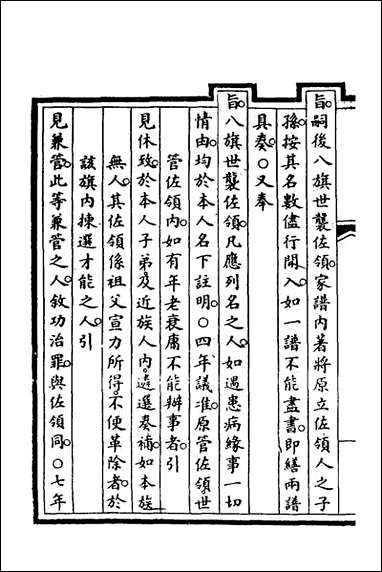 旨嗣後八旗世襲佐領家譜內著將原立佐領人之子
孫按其名數儘行開入如一譜不能盡書即繕兩譜
具奏○又奉
旨八旗世襲佐領凡應列名之人如遇患病緣事一切
情由均於本人名下註明○四年議准原管佐領世
管佐領內如有年老衰庸不能辦事者引
見休致於本人子弟及近族人內遴選奏補如本族
無人其佐領係祖父宣力所得不便革除者於
該旗內揀選才能之人引
見兼管此等兼管之人敘功治罪與佐領同○七年